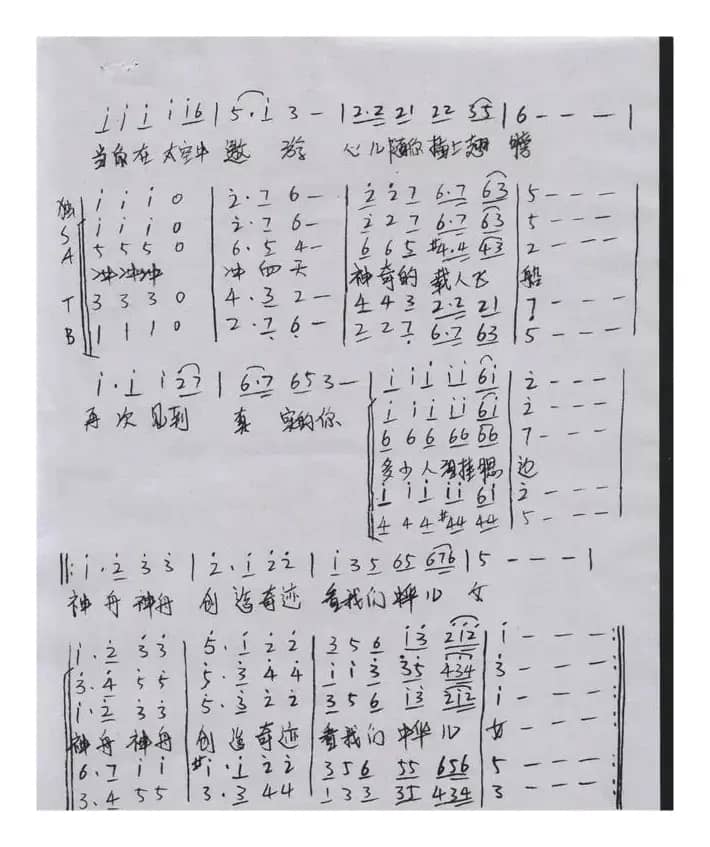 i i i i i6 | 5·i 3 – | 2·2 21 22 35 | 6 – – – |
当你在太空中 遨 游 心儿随你插上翅 膀
独 i i i 0 | 2·7 6 – | 2 2 7 6·7 63 | 5 – – –
S i i i 0 | 2·7 6 – | 2 2 7 6·7 63 | 5 – – –
A 5 5 5 0 | 6·5 4 – | 6 6 5 #4·4 43 | 2 – – –
冲冲冲 冲 向 天 神奇的 载人飞 船
T 3 3 3 0 | 4·3 2 – | 4 4 3 2·2 21 | 7 – – –
B 1 1 1 0 | 2·7 6 – | 2 2 7 6·7 63 | 5 – – –
i·i i 27 | 6·7 653 – | i i i i i 6i | 2 – – –
i i i i i 6i | 2 – – –
再 次 见到 真 实的你
6 6 6 66 66 | 7 – – –
多少人 牵挂 边
i i i i i 6i | 2 – – –
4 4 4 #44 44 | 5 – – –
‖: i·2 3 3 | 2·i 2 2 | i 3 5 65 676 | 5 – – – |
神 舟 神舟 创 造 奇迹 看我们 中华 儿 女
i·2 3 3 | 5·i 2 2 | 3 5 6 i3 2i2 | i – – –
3·4 5 5 | 5·3 4 4 | i i 3 35 434 | 3 – – –
i·2 3 3 | 5·3 2 2 | 3 5 6 i3 2i2 | i – – –
神 舟 神舟 创 造 奇迹 看我们 中华 儿 女
6·7 i i | #i·i 2 2 | 3 5 6 55 656 | 5 – – –
3·4 5 5 | 3·3 4 4 | 1 3 3 35 434 | 3 – – –